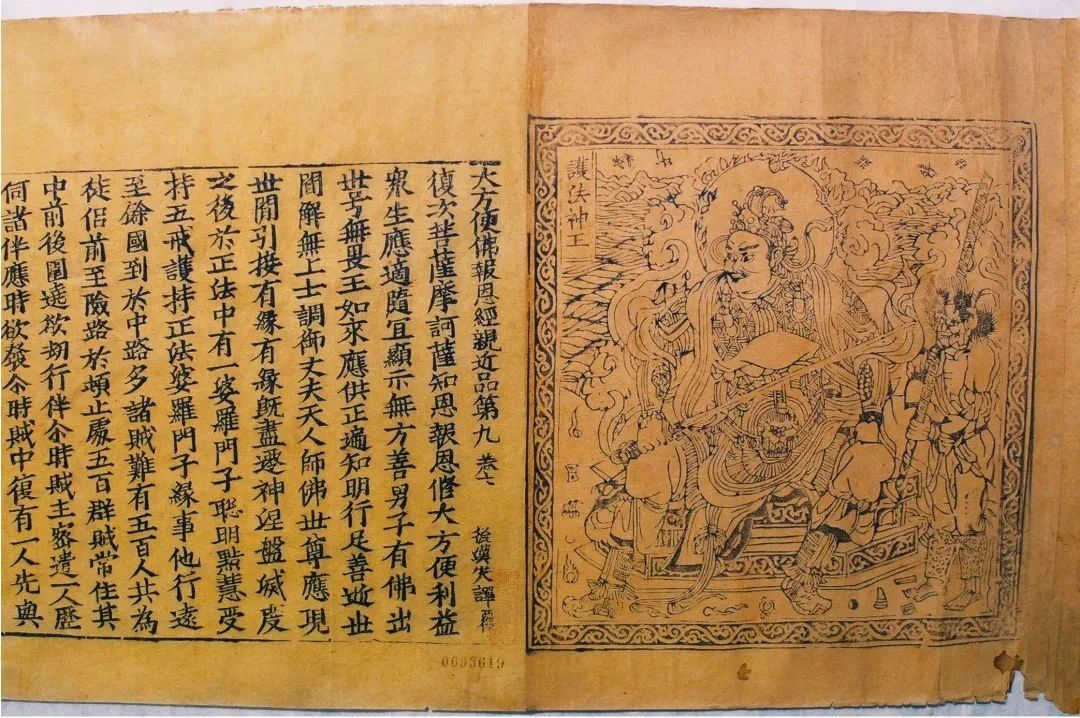 護法神王
大方便佛報恩經親近品第九 卷七 後漢失譯
復次菩薩摩訶薩知恩報恩修大方便利益
衆生應適隨宜顯示無方善男子有佛出
世号無畏王如来應供正遍知明行足善逝世
間解無上士調御丈夫天人師佛世尊應現
世間引接有緣有緣既盡遷神涅盤滅度
之後於正法中有一婆羅門子聰明黠慧受
持五戒護持正法婆羅門子緣事他行遠
至餘國到於中路多諸賊難有五百人共為
徒侣前至險路於頓止處五百群賊常住其
中前後圍遶欲劫行伴尒時賊主密遣一人歷
伺諸伴應時欲發尒時賊中復有一人先與
0693619